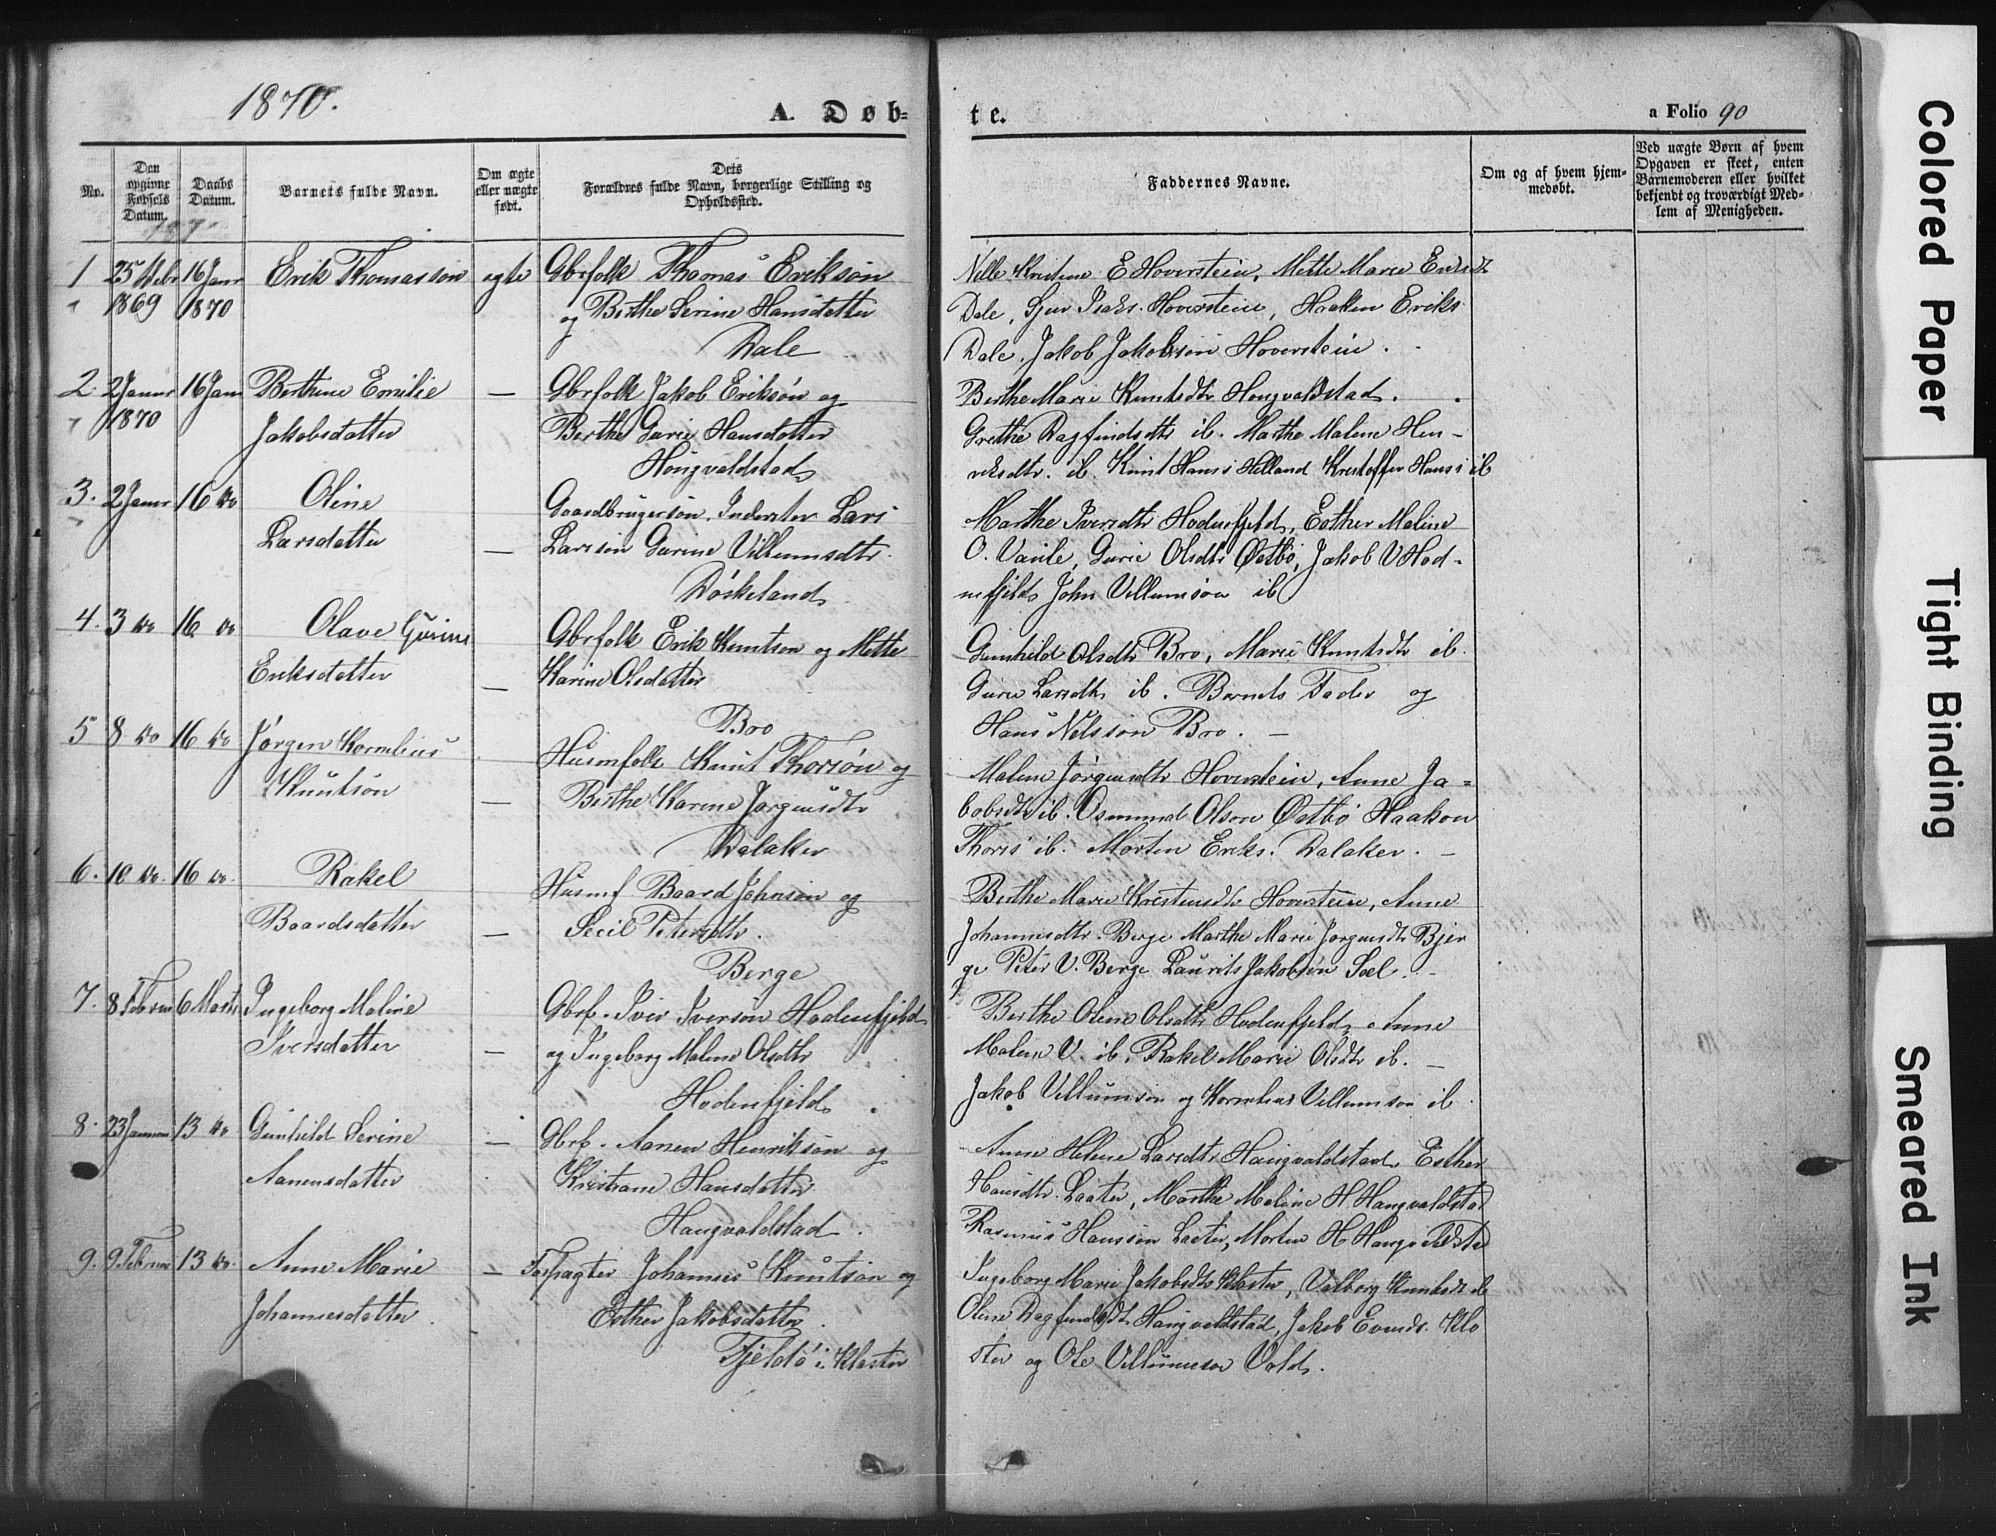 1870.
A. Døb-
te.
a Folio 90
No.
Den opgivne Fødsels Datum.
Daabs Datum.
Barnets fulde Navn.
Om ægte eller uægte født.
Dets Forældres fulde Navn, borgerlige Stilling og Opholdssted.
Faddernes Navne.
Om og af hvem hjem-
medøbt.
Ved uægte Børn af hvem
Opgaven er skeet, enten
Barnemoderen eller hvilket
bekjendt og troværdigt Med-
lem af Menigheden.
1 25 Debr 16 Janr Erik Thomassøn ægte Gbrfolk Thomas Erikson
1869 1870 og Berthe Serine Hansdatter
Dale
Nille Kristine E Hoverstein, Mette Marie Eriksdtr
Dale, Sjur Isaks. Hoverstein, Haaken Eriks
Dale, Jakob Jakobsøn Hoverstein.
2. 2 Januar 16 Jan Berthine Emilie — Gbrfolk Jakob Eriksøn og
1870 Jakobsdatter Berthe Gurie Hansdatter
Hougvaldstad
Berthe Marie Knutsdtr Hougvaldstad.
Grethe Dagfindsdtr ib. Marthe Malene Hen-
riksdtr. ib. Knut Hans: Helland Kristoffer Hans: ib
3. 2 Januar 16 do Oline Gaardbrugersøn, Inderster Lars
Larsdatter — Larsson Gurine Villumsdtr.
Røskeland
Marthe Iversdtr Hodnefjeld, Esther Maline
O. Vaule, Gurie Olsdtr Østbø, Jakob V Hod-
nefjeld John Villumsøn ib
4. 3 do 16 do Olave Gurine Gbrfolk Erik Knutson og Mette
Eriksdatter — Karine Olsdatter
Bro
Gunhild Olsdtr Bro, Marie Knutsdtr ib.
Gurie Larsdtr ib. Barnets Fader og
Hans Nilsson Bro. —
5 8 do 16 do Jørgen Kornelius Husmfolk Knut Thorsøn og
Knutsøn — Berthe Karine Jørgensdtr
Dalaker
Malene Jørgensdtr Hoverstein, Anne Ja-
kobsdtr ib. Osmund Olson Østbø Haakon
Thoris ib. Morten Eriks. Dalaker. —
6. 10 do. 16 do. Rakel Husmf Baard Johnsøn og
Baardsdatter — Secil Petersdtr.
Berge
Berthe Marie Kristensdtr Hoverstein, Anne
Johannesdtr. Berge Marthe Marie Jørgensdtr Bjer
ge Peter V. Berge Laurits Jakobsøn Sæl. -
7. 8 Febrm 6 Marts Ingeborg Maline Gbrf. Iver Iversøn Hodnefjeld
Iversdatter — og Ingeborg Malene Olsdtr
Hodnefjeld
Berthe Olene Olsdtr Hodnefjeld, Anne
Malene V. ib. Rakel Marie Olsdtr ib. —
Jakob Villumsøn og Kornelius Villumson ib
8. 23 Januar 13 do Gunhild Serine — Gbrf. Aanen Henriksøn og
Aanensdatter Kristiane Hansdatter
Haugvaldstad.
Anne Helene Larsdtr Haugvaldstad, Esther
Hansdtr. Laater, Marthe Maline H Haugvaldstad
Rasmus Hansson Laater, Morten H Haugvaldstad
9. 9 Februar 13 do. Anne Marie — Forpagter Johannes Knutsøn og
Johannesdatter. Esther Jakobsdatter.
Fjeldø i Kloster
Ingeborg Marie Jakobsdtr Kloster, Valborg Knutsdtr ib
Olene Dagfindsdtr Haugvaldstad, Jakob Evinds. Klo
ster og Ole Villumson Vold.
Colored Paper
Tight Binding
Smeared Ink